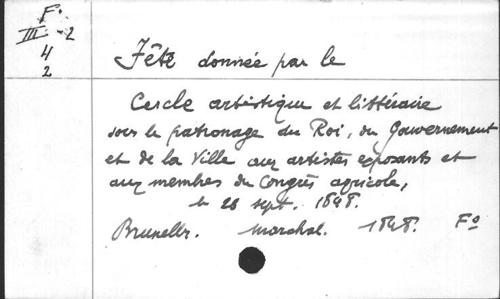 Fo
III - 2
4
2
Fête donnée par le
Cercle artistique et littéraire
sous le patronage du Roi, du Gouvernement
et de la Ville aux artistes exposants et
aux membres du Congrès agricole,
le 28 sept. 1848.
Bruxelles. Marchal. 1848. Fo